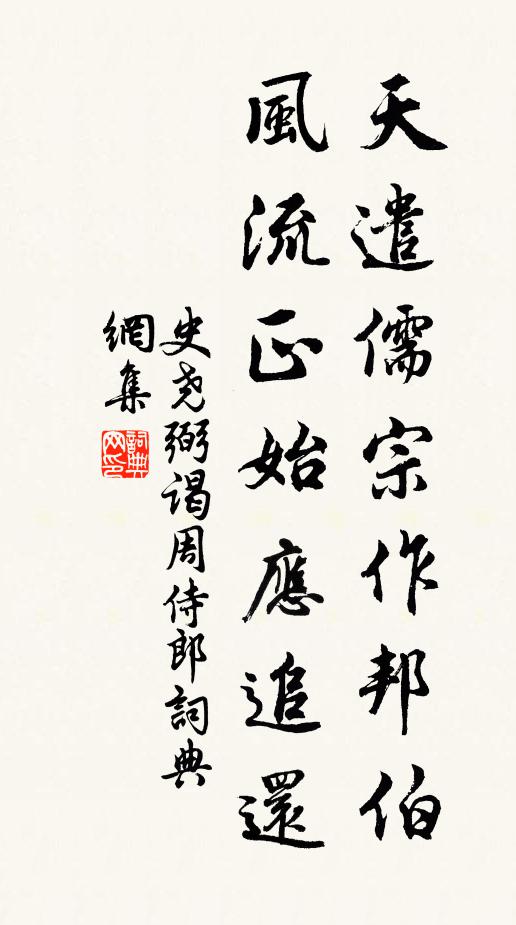 天遣儒宗作邦伯
風流正始應追還
史堯弼謁周侍郎詞典
網集
詞典網印